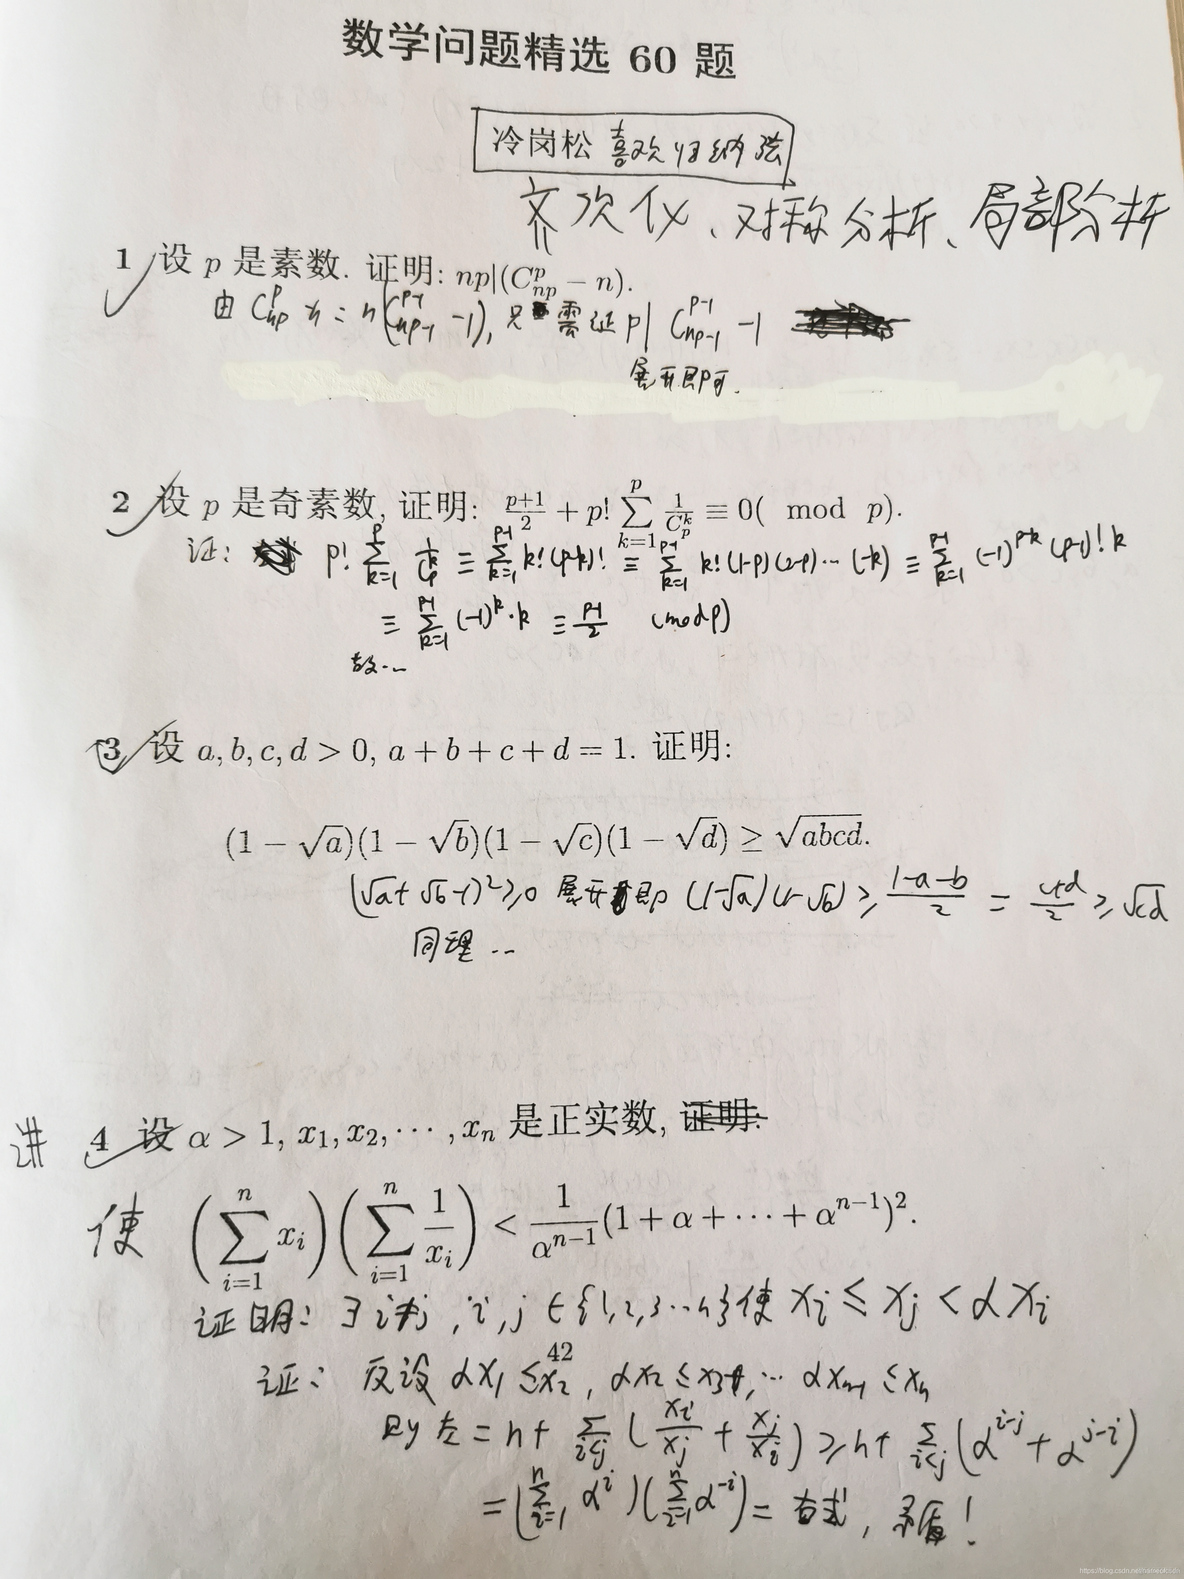 数学问题精选 60 题
冷岗松 喜欢归纳法
齐次化、对称分析、局部分析
1 设 p 是素数. 证明: np|(C_{np}^{p} − n).
由 C_{np}^{p} − n = n(C_{np-1}^{p-1} − 1), 只需证 p | C_{np-1}^{p-1} − 1
展开即可.
2 设 p 是奇素数, 证明: \frac{p+1}{2} + p! \sum_{k=1}^{p} \frac{1}{C_p^k} ≡ 0( mod p).
证: p! \sum_{k=1}^{p} \frac{1}{C_p^k} ≡ \sum_{k=1}^{p-1} k!(p-k)! ≡ \sum_{k=1}^{p-1} k!(1-p)(2-p)⋯(-k) ≡ \sum_{k=1}^{p-1} (-1)^{p-k}(p-1)! k
≡ \sum_{k=1}^{p-1} (-1)^k · k ≡ \frac{p-1}{2} (mod p)
故...
3 设 a, b, c, d > 0, a + b + c + d = 1. 证明:
(1 − √a)(1 − √b)(1 − √c)(1 − √d) ≥ √abcd.
(√a + √b − 1)² ≥ 0 展开即 (1−√a)(1−√b) ≥ \frac{1-a-b}{2} = \frac{c+d}{2} ≥ √cd
同理 ...
讲 4 设 α > 1, x_1, x_2, ⋯, x_n 是正实数, 证明:
使 (\sum_{i=1}^{n} x_i)(\sum_{i=1}^{n} \frac{1}{x_i}) < \frac{1}{α^{n−1}}(1 + α + ⋯ + α^{n−1})².
证明: ∃ i≠j, i, j ∈ {1,2,3⋯n} 使 x_i ≤ x_j < αx_i
42
证: 反设 αx_1 ≤ x_2, αx_2 ≤ x_3, ⋯ αx_{n-1} ≤ x_n
则左 = n + \sum_{i<j} (\frac{x_i}{x_j} + \frac{x_j}{x_i}) ≥ n + \sum_{i<j} (α^{i-j} + α^{j-i})
= (\sum_{i=1}^{n} α^i)(\sum_{i=1}^{n} α^{-i}) = 右式, 矛盾!